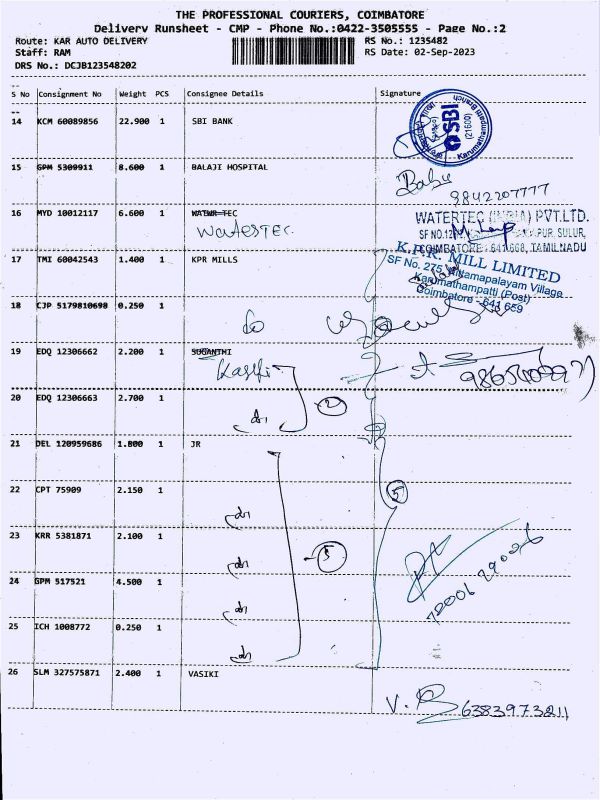 THE PROFESSIONAL COURIERS, COIMBATORE
Delivery Runsheet - CMP - Phone No.:0422-3505555 - Page No.:2
Route: KAR AUTO DELIVERY
RS No.: 123S482
Staff: RAM
RS Date: 02-Sep-2023
DRS No.: DCJB123548202
S No Consignment No Weight PCS Consignee Details Signature
14 KCM 60089856 22.900 1 SBI BANK
SBI
(21600)
Karumathampatti Branch
15 GPM 5309911 8.600 1 BALAJI HOSPITAL
Babu
9842207777
16 MYD 10012117 6.600 1 WATWR TEC
WATERTEC
WATERTEC (INDIA) PVT.LTD.
SULUR,
COIMBATORE - 641 668, TAMILNADU
17 TMI 60042543 1.400 1 KPR MILLS
K.P.R. MILL LIMITED
SF No. 275, Kittamapalayam Village
Karumathampatti (Post)
Coimbatore - 641 659
18 CJP 5179810698 0.250 1
do
19 EDQ 12306662 2.200 1 SUGANTHI
20 EDQ 12306663 2.700 1
do
2
21 DEL 120959686 1.800 1 JR
22 CPT 75909 2.150 1
do
5
23 KRR 5381871 2.100 1
do
5
24 GPM 517521 4.500 1
do
25 ICH 1008772 0.250 1
do
26 SLM 327575871 2.400 1 VASIKI
V.
6383973211